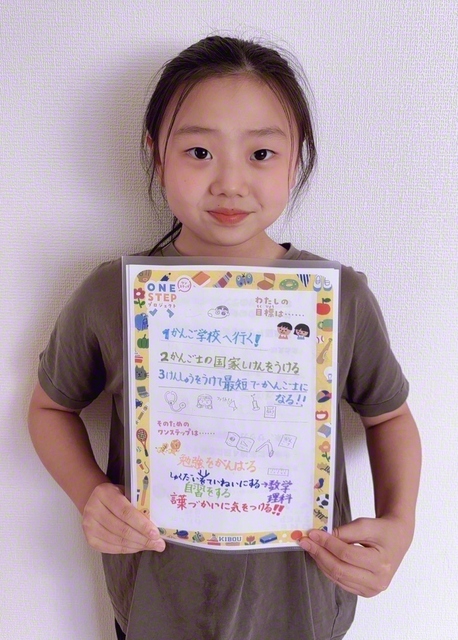 ONE
STEP
プロジェクト
わたしの
目標は……
1かんご学校へ行く!
2かんご士の国家しけんをうける
3けんしゅうをうけて最短でかんご士に
なる!!
そのための
ワンステップは……
勉強をがんばる
しゅくだいをていねいにする→数学
自習をする 理科
言葉づかいに気をつける!!
KIBOU